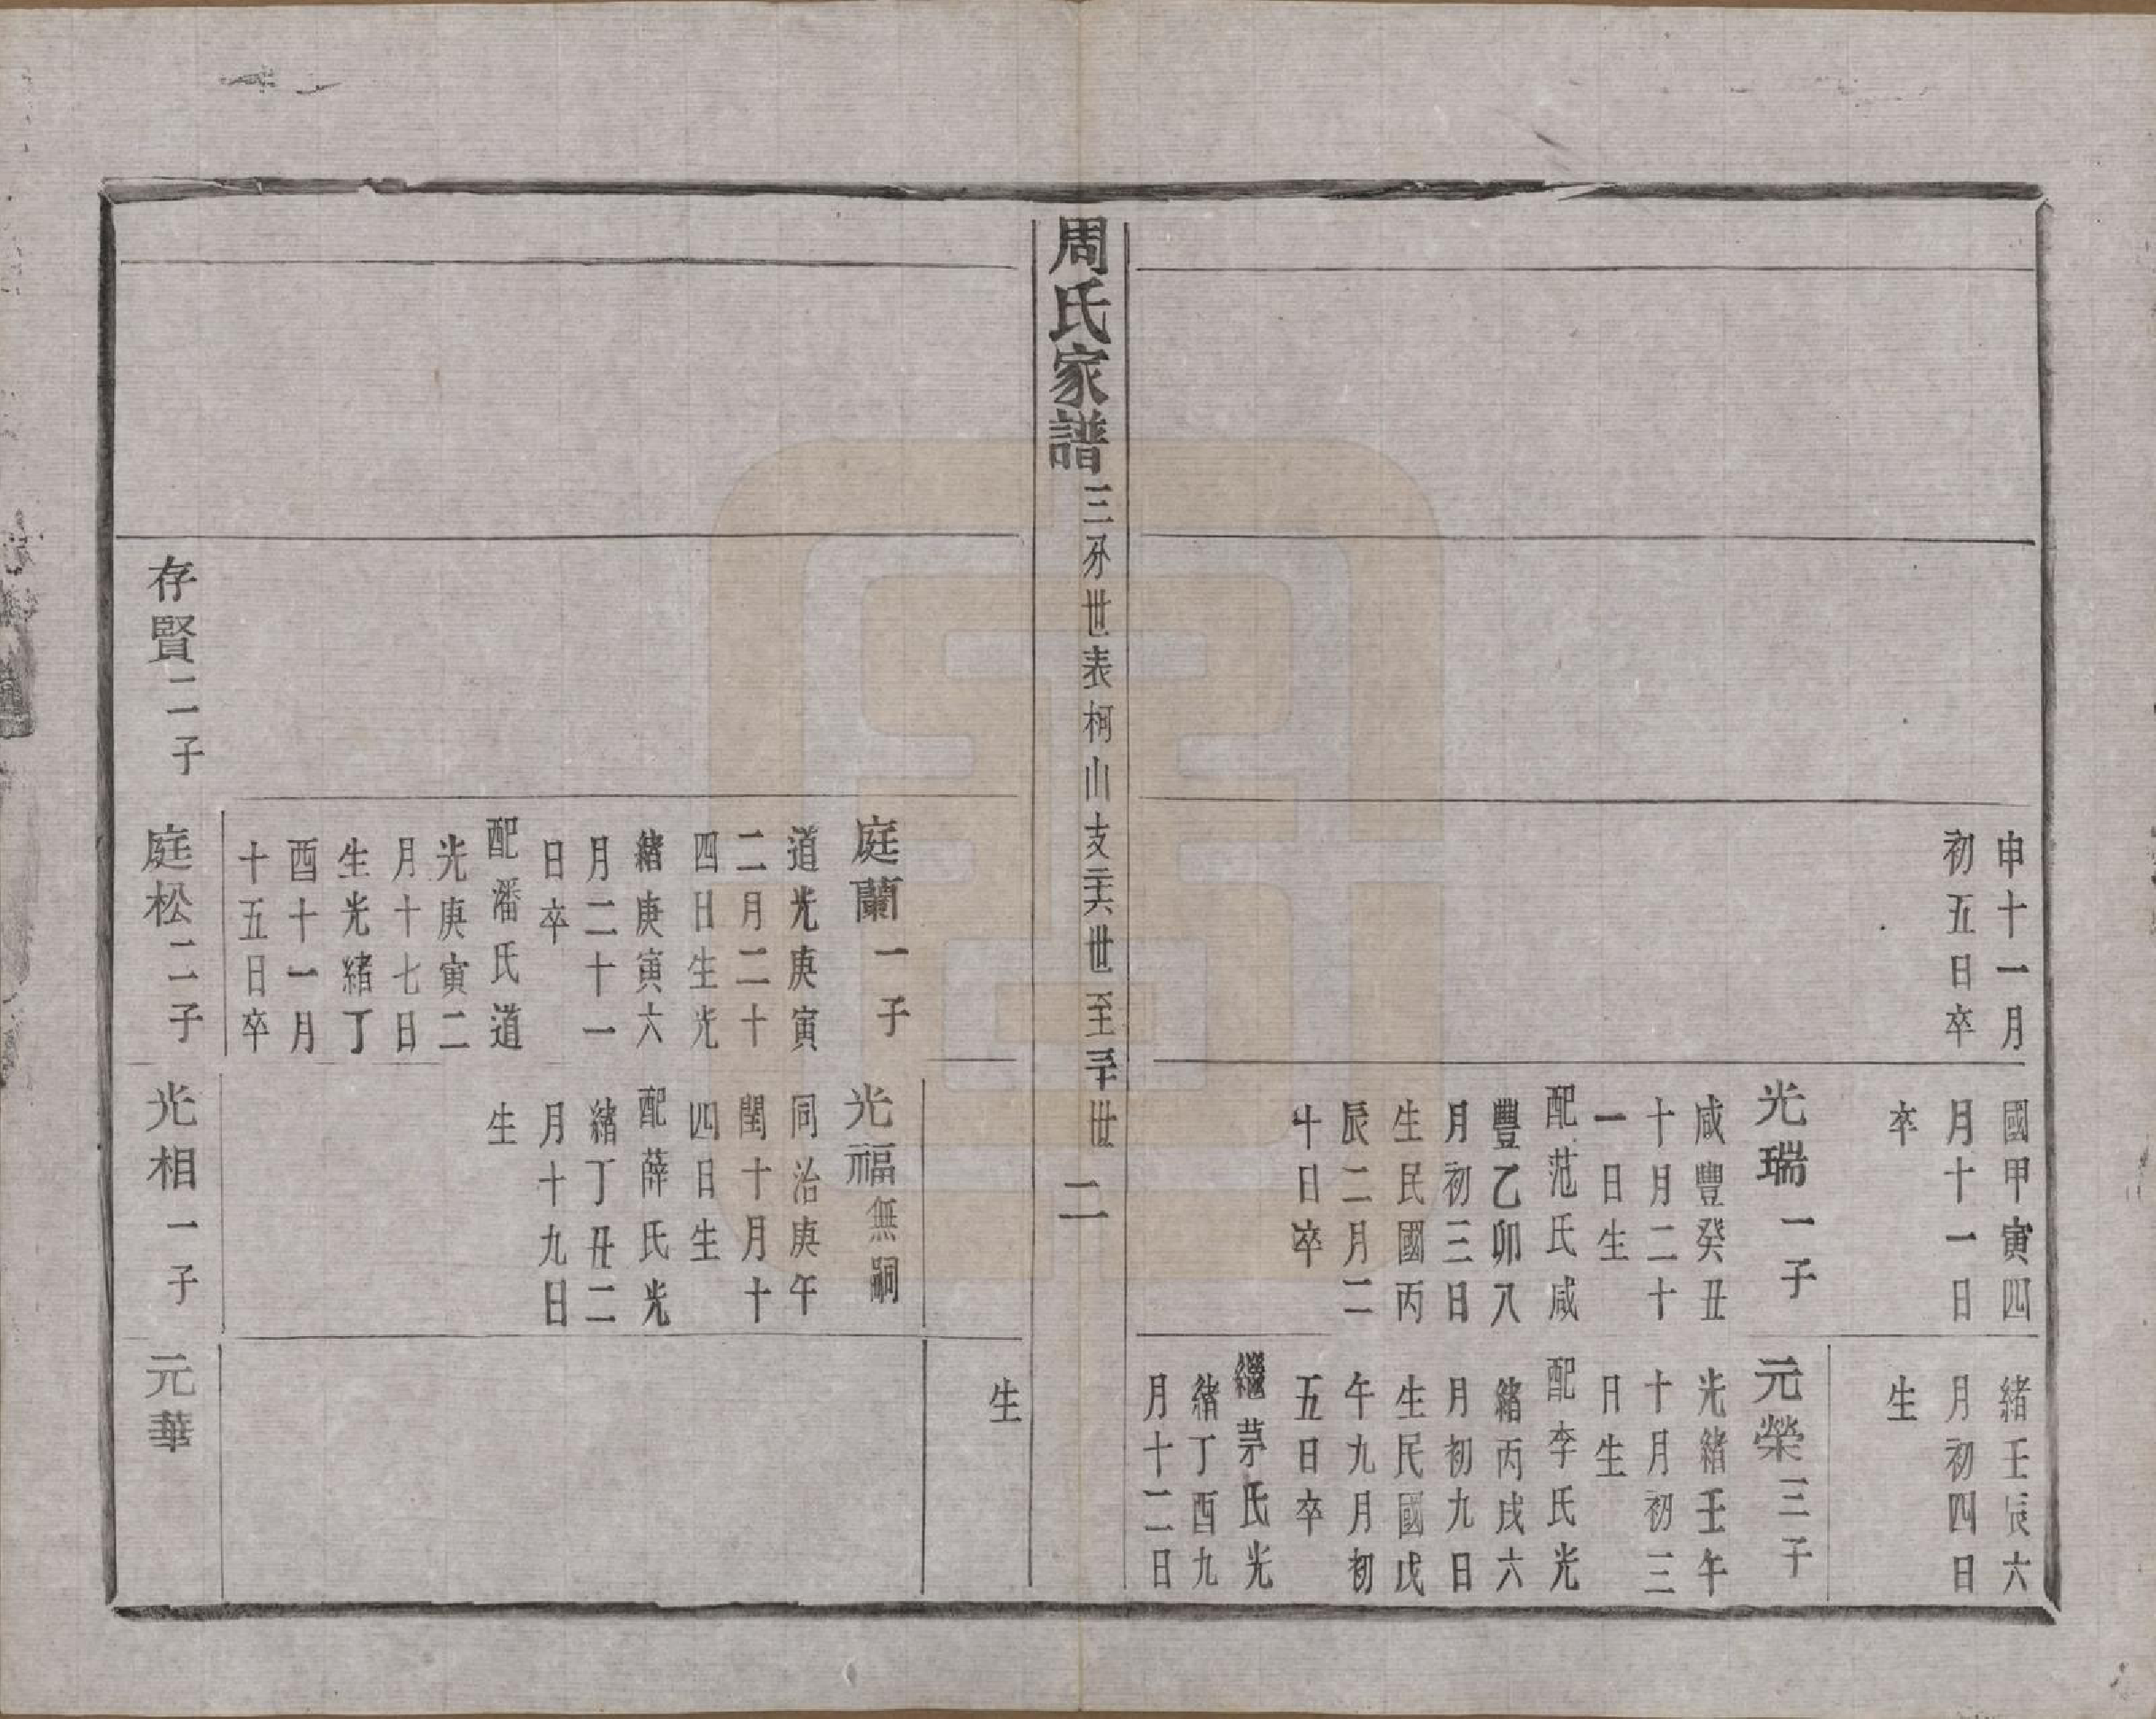 申十一月
初五日卒
國甲寅四
月十一日
卒
光瑞一子
咸豐癸丑
十月二十
一日生
配范氏咸
豐乙卯八
月初三日
生民國丙
辰二月二
十日卒
緒壬辰六
月初四日
生
元榮三子
光緒壬午
十月初三
日生
配李氏光
緒丙戌六
月初九日
生民國戊
午九月初
五日卒
繼茅氏光
緒丁酉九
月十二日
周氏家譜 三分世表柯山支二十六世至三十世 二
生
庭蘭一子
道光庚寅
二月二十
四日生光
緒庚寅六
月二十一
日卒
配潘氏道
光庚寅二
月十七日
生光緒丁
酉十一月
十五日卒
光福無嗣
同治庚午
閏十月十
四日生
配薛氏光
緒丁丑二
月十九日
生
存賢二子
庭松二子
光相一子
元華